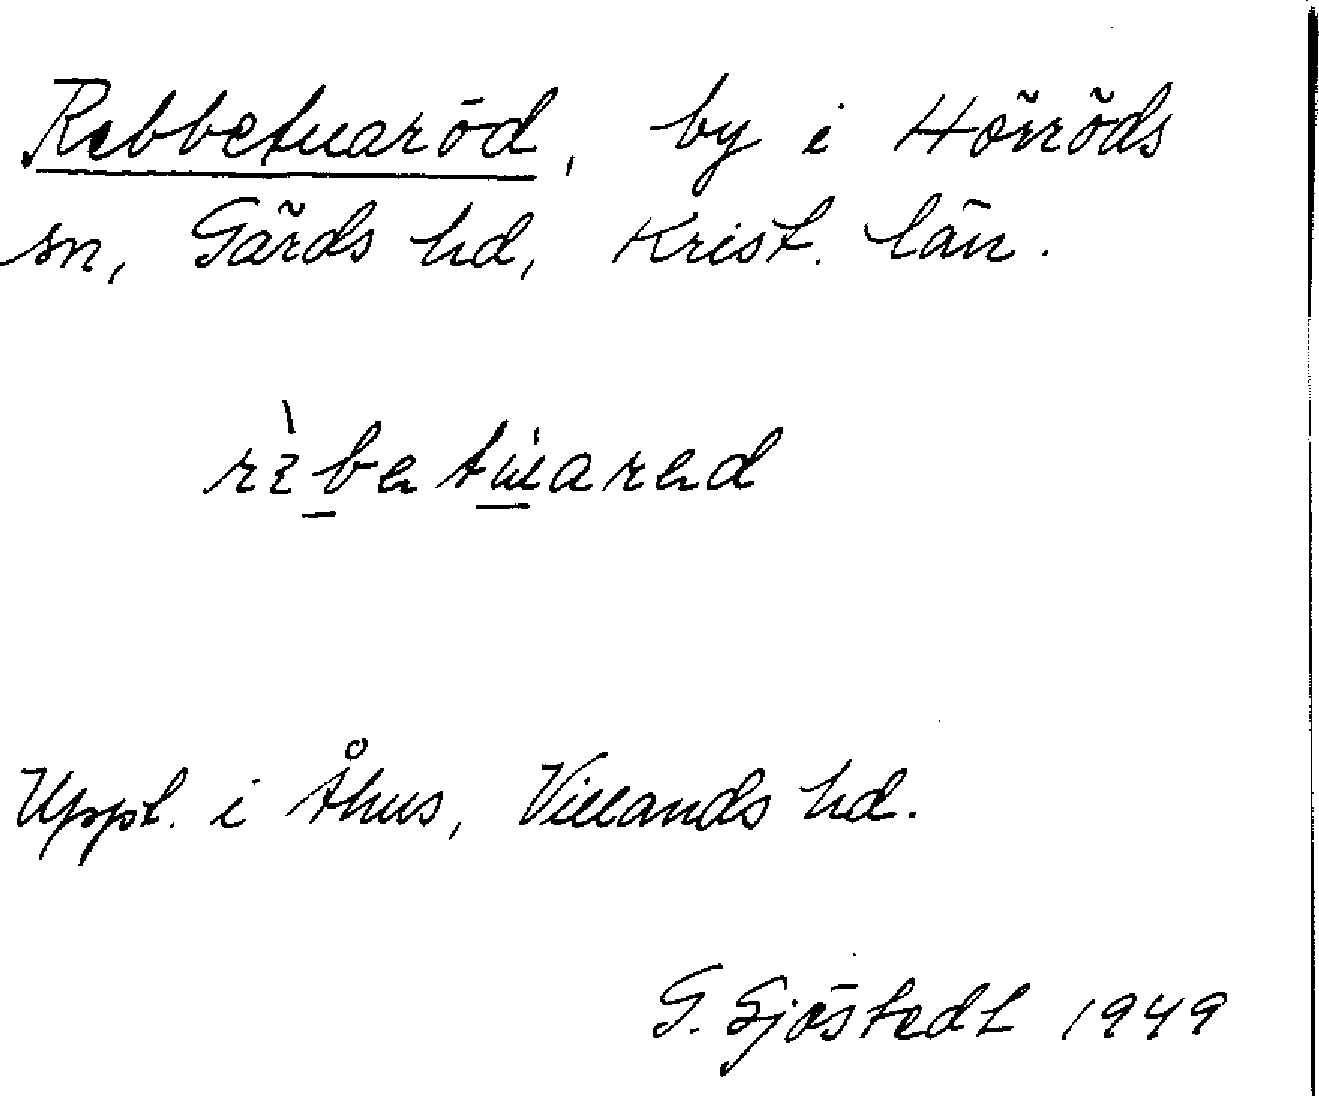 Rebbetuaröd, by i Hörröds
sn, Gärds hd, Krist. län.
Uppt. i Åhus, Villands hd.
G. Sjöstedt 1949